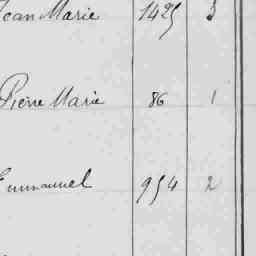 Jean Marie 1425 3
Pierre Marie 86 1
Emmanuel 954 2